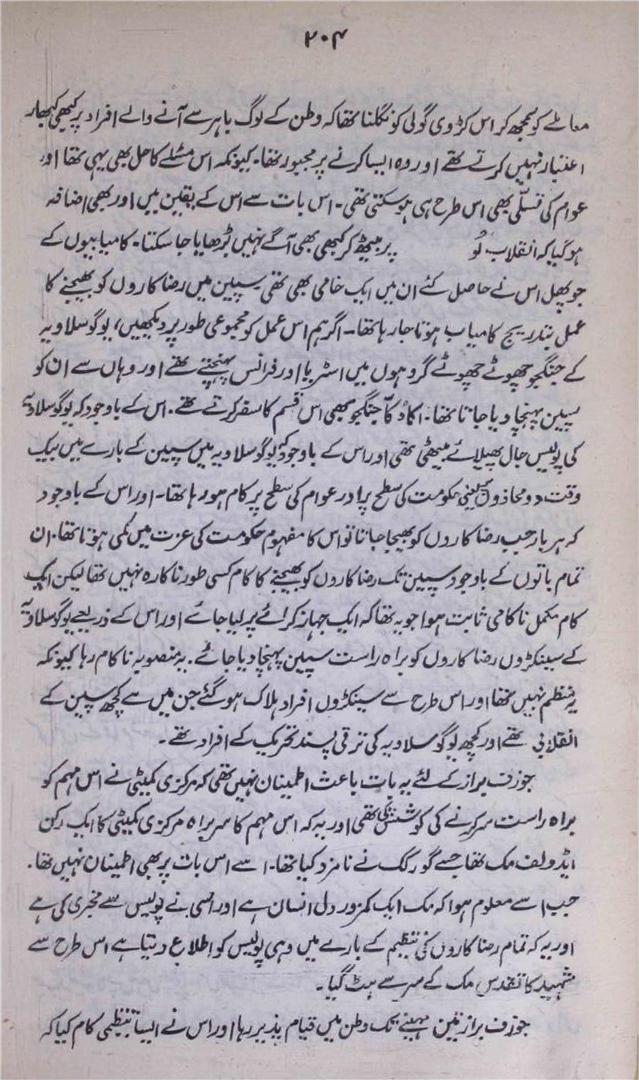 ۲۰۴
معاملے کو سمجھ کر اس کڑوی گولی کو نگلنا تھا کہ وطن کے لوگ باہر سے آنے والے افراد پر کبھی کبھار
اعتبار نہیں کرتے تھے اور وہ ایسا کرنے پر مجبور تھا۔ کیونکہ اس مسئلے کا حل بھی یہی تھا اور
عوام کی تسلّی بھی اس طرح ہی ہو سکتی تھی۔ اس بات سے اس کے یقین میں اور بھی اضافہ
ہو گیا کہ انقلاب کو پر بیٹھ کر کبھی بھی آگے نہیں بڑھایا جا سکتا۔ کامیابیوں کے
جو پھل اس نے حاصل کئے ان میں ایک خامی بھی تھی سپین میں رضا کاروں کو بھیجنے کا
عمل بتدریج کامیاب ہوتا جا رہا تھا۔ اگر ہم اس عمل کو مجموعی طور پر دیکھیں، یوگوسلاویہ
کے جنگجو چھوٹے چھوٹے گروہوں میں آسٹریا اور فرانس پہنچتے تھے اور وہاں سے ان کو
سپین پہنچا دیا جاتا تھا۔ اکا دکا جنگجو بھی اس قسم کا سفر کرتے تھے۔ اس کے باوجود کہ یوگوسلاویہ
کی پولیس جال پھیلائے بیٹھی تھی اور اس کے باوجود کہ یوگوسلاویہ میں سپین کے بارے میں بیک
وقت دو محاذوں یعنی حکومت کی سطح پر اور عوام کی سطح پر کام ہو رہا تھا۔ اور اس کے باوجود
کہ ہر بار جب رضا کاروں کو بھیجا جاتا تو اس کا مفہوم حکومت کی عزت میں کمی ہوتا تھا۔ ان
تمام باتوں کے باوجود سپین تک رضا کاروں کو بھیجنے کا کام کسی طور ناکارہ نہیں تھا لیکن ایک
کام مکمل ناکامی ثابت ہوا جو یہ تھا کہ ایک جہاز کرائے پر لیا جائے اور اس کے ذریعے یوگوسلاویہ
کے سینکڑوں رضا کاروں کو براہ راست سپین پہنچا دیا جائے۔ یہ منصوبہ ناکام رہا کیونکہ
یہ منظم نہیں تھا اور اس طرح سے سینکڑوں افراد ہلاک ہو گئے جن میں سے کچھ سپین کے
انقلابی تھے اور کچھ یوگوسلاویہ کی ترقی پسند تحریک کے افراد تھے۔
جوزف براز کے لئے یہ بات باعث اطمینان نہیں تھی کہ مرکزی کمیٹی نے اس مہم کو
براہ راست سر کرنے کی کوشش کی تھی اور یہ کہ اس مہم کا سربراہ مرکزی کمیٹی کا ایک رکن
ایڈولف مک تھا جسے گورکگ نے نامزد کیا تھا۔ اسے اس بات پر بھی اطمینان نہیں تھا۔
جب اسے معلوم ہوا کہ مک ایک کمزور دل انسان ہے اور اسی نے پولیس سے مخبری کی ہے
اور یہ کہ تمام رضا کاروں کی تنظیم کے بارے میں وہی پولیس کو اطلاع دیتا ہے اس طرح سے
شہید کا تقدس مک کے سر سے ہٹ گیا۔
جوزف براز تین مہینے تک وطن میں قیام پذیر رہا اور اس نے ایسا تنظیمی کام کیا کہ